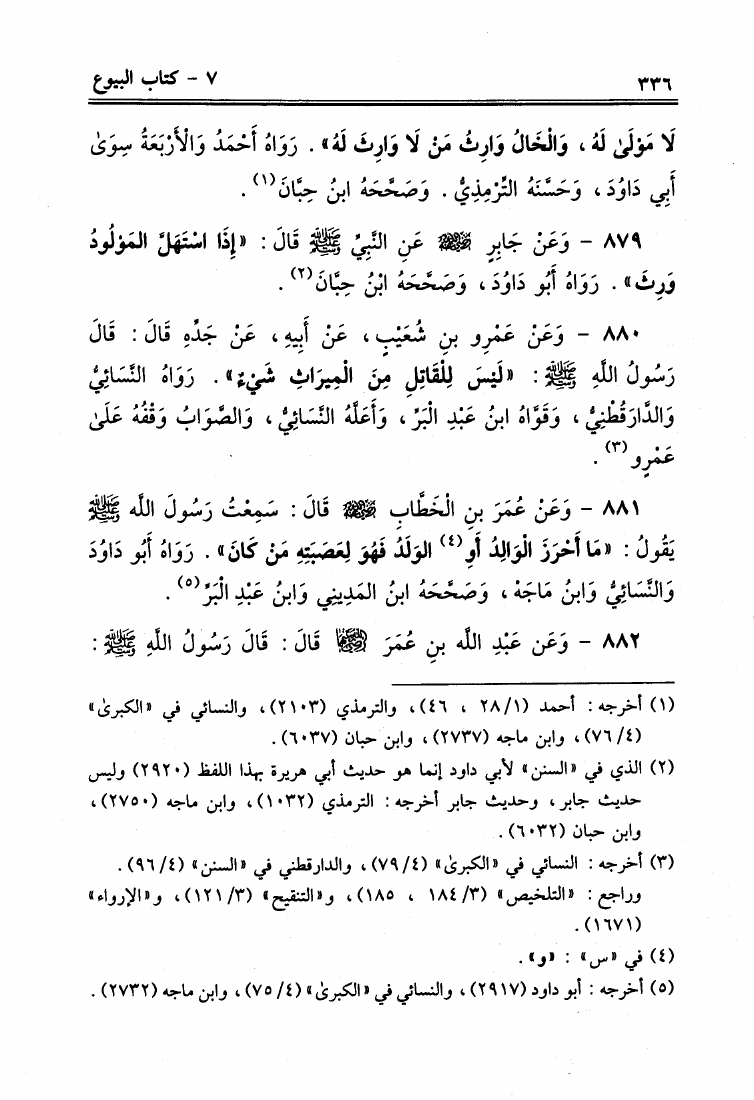 ٣٣٦ ٧ - كتاب البيوع
لَا مَوْلَىٰ لَهُ ، وَالْخَالُ وَارِثُ مَنْ لَا وَارِثَ لَهُ» . رَوَاهُ أَحْمَدُ وَالْأَرْبَعَةُ سِوَىٰ
أَبِي دَاوُدَ ، وَحَسَّنَهُ التِّرْمِذِيُّ . وَصَحَّحَهُ ابنُ حِبَّانَ(١) .
٨٧٩ - وَعَنْ جَابِرٍ رضي الله عنه عَنِ النَّبِيِّ ﷺ قَالَ : «إِذَا اسْتَهَلَّ المَوْلُودُ
وَرِثَ» . رَوَاهُ أَبُو دَاوُدَ ، وَصَحَّحَهُ ابْنُ حِبَّانَ(٢) .
٨٨٠ - وَعَنْ عَمْرِو بنِ شُعَيْبٍ ، عَنْ أَبِيهِ ، عَنْ جَدِّهِ قَالَ : قَالَ
رَسُولُ اللَّهِ ﷺ : «لَيْسَ لِلْقَاتِلِ مِنَ الْمِيرَاثِ شَيْءٌ» . رَوَاهُ النَّسَائِيُّ
وَالدَّارَقُطْنِيُّ ، وَقَوَّاهُ ابنُ عَبْدِ الْبَرِّ ، وَأَعَلَّهُ النَّسَائِيُّ ، وَالصَّوَابُ وَقْفُهُ عَلَىٰ
عَمْرٍو(٣) .
٨٨١ - وَعَنْ عُمَرَ بنِ الْخَطَّابِ رضي الله عنه قَالَ : سَمِعْتُ رَسُولَ اللَّه ﷺ
يَقُولُ : «مَا أَحْرَزَ الْوَالِدُ أَوِ(٤) الوَلَدُ فَهُوَ لِعَصَبَتِهِ مَنْ كَانَ» . رَوَاهُ أَبُو دَاوُدَ
وَالنَّسَائِيُّ وَابنُ مَاجَهْ ، وَصَحَّحَهُ ابنُ المَدِينِي وَابنُ عَبْدِ الْبَرِّ(٥) .
٨٨٢ - وَعَن عَبْدِ اللَّه بنِ عُمَرَ رضي الله عنهما قَالَ : قَالَ رَسُولُ اللَّهِ ﷺ :
(١) أخرجه : أحمد (٢٨/١ ، ٤٦) ، والترمذي (٢١٠٣) ، والنسائي في «الكبرىٰ»
(٧٦/٤) ، وابن ماجه (٢٧٣٧) ، وابن حبان (٦٠٣٧) .
(٢) الذي في «السنن» لأبي داود إنما هو حديث أبي هريرة بهذا اللفظ (٢٩٢٠) وليس
حديث جابر ، وحديث جابر أخرجه : الترمذي (١٠٣٢) ، وابن ماجه (٢٧٥٠) ،
وابن حبان (٦٠٣٢) .
(٣) أخرجه : النسائي في «الكبرىٰ» (٧٩/٤) ، والدارقطني في «السنن» (٩٦/٤) .
وراجع : «التلخيص» (١٨٤/٣ ، ١٨٥) ، و«التنقيح» (١٢١/٣) ، و«الإرواء»
(١٦٧١) .
(٤) في «س» : «و» .
(٥) أخرجه : أبو داود (٢٩١٧) ، والنسائي في «الكبرىٰ» (٧٥/٤) ، وابن ماجه (٢٧٣٢) .